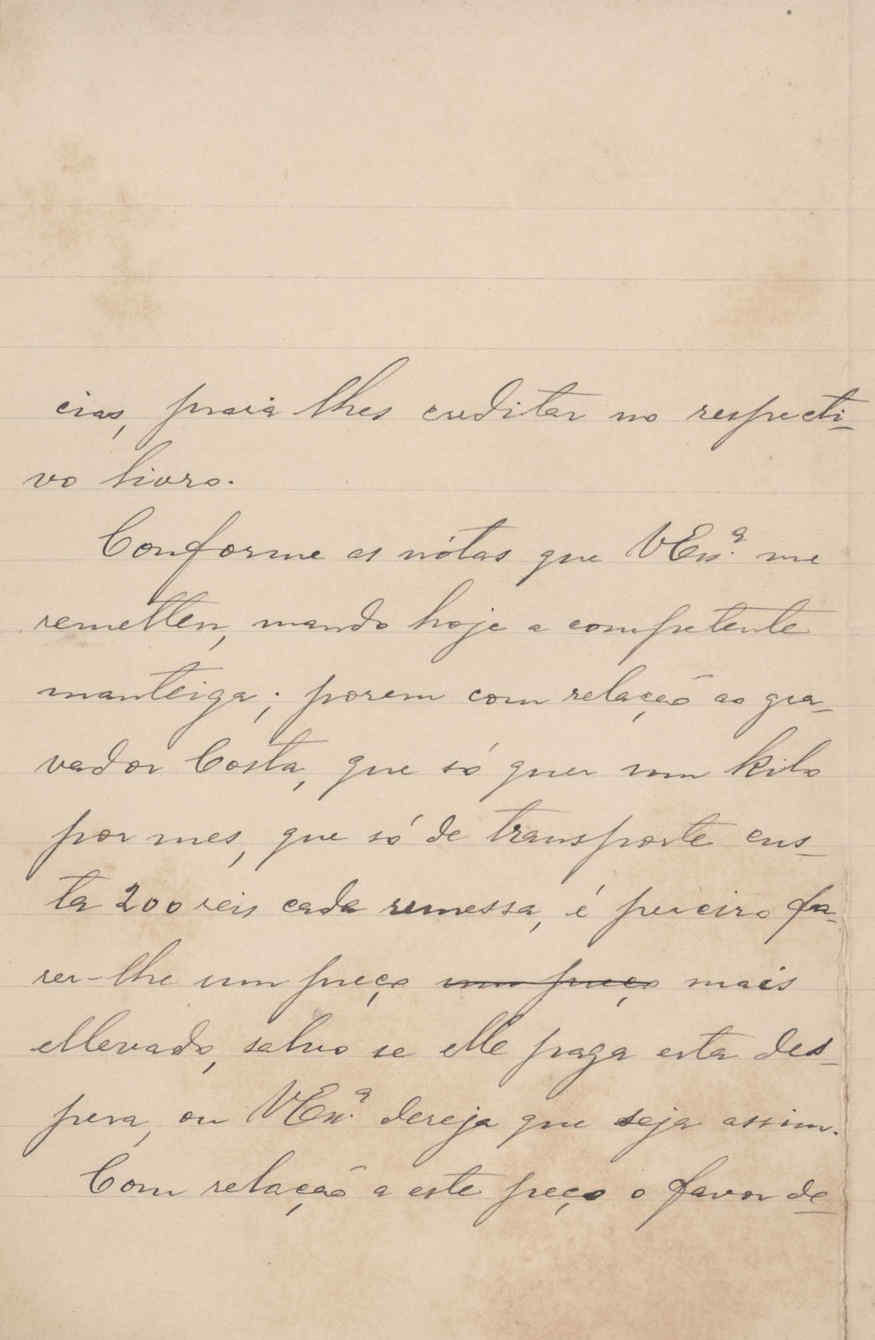 cias, para lhes creditar no respecti-
vo livro.
Conforme as nótas que VEx.ª me
remetteu, mando hoje a competente
manteiga; porem com relação ao gra-
vador Costa, que só quer um kilo
por mes, que só de transporte cus-
ta 200 reis cada remessa, é preciso fa-
zer-lhe um preço um preço mais
ellevado, salvo se elle paga esta des-
peza, ou VEx.ª dezeja que seja assim.
Com relação a este peço o favor de